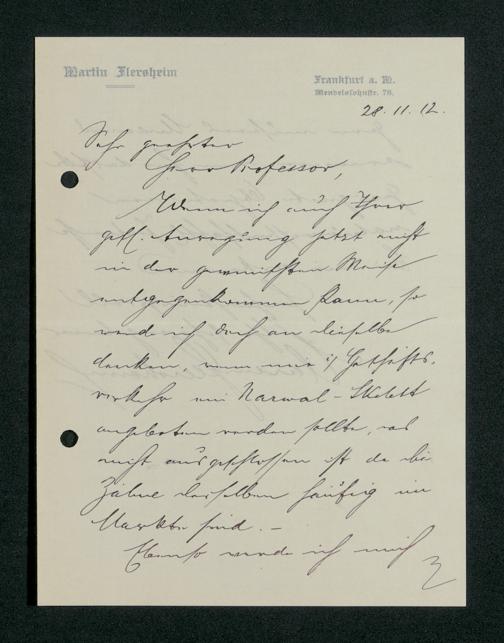 Martin Flersheim
Frankfurt a. M.
Mendelssohnstr. 78.
28. 11. 12.
Sehr geehrter
Herr Professor,
Wenn ich auch Ihrer
gefl. Anregung jetzt nicht
in der gewünschten Weise
entgegenkommen kann, so
werde ich doch an dieselbe
denken, wenn mir i/ Geschäfts-
verkehr ein Narwal-Skelett
angeboten werden sollte, was
nicht ausgeschlossen ist da die
Zähne desselben häufig im
Markte sind. –
Ebenso werde ich mich